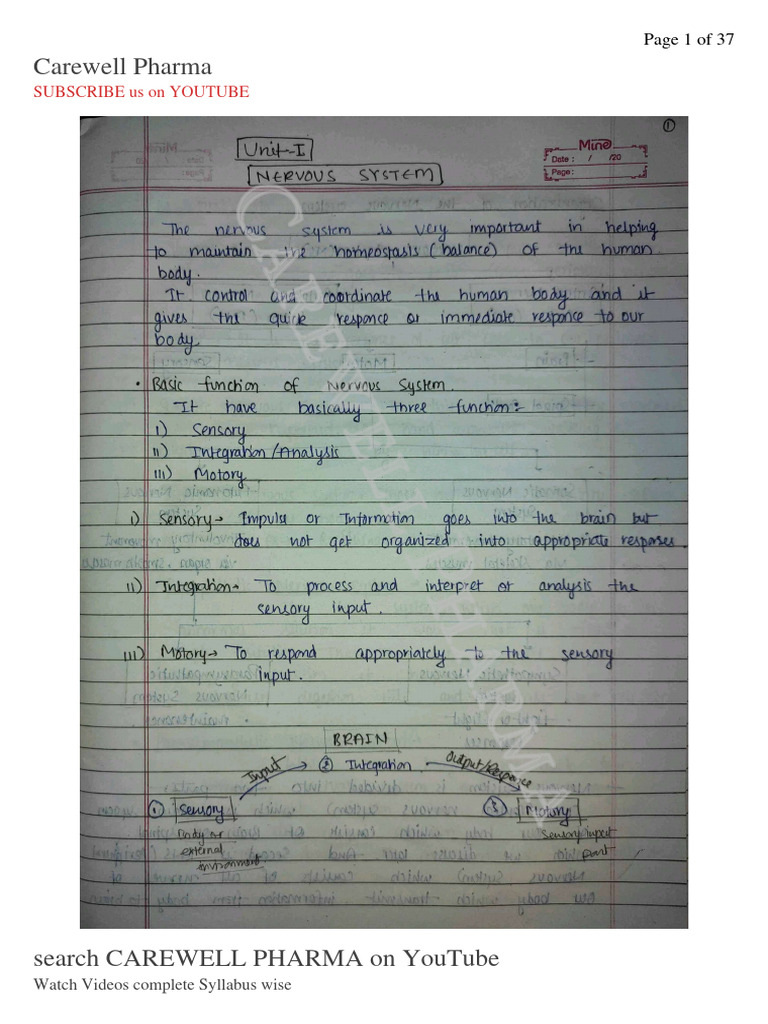 Page 1 of 37
Carewell Pharma
SUBSCRIBE us on YOUTUBE
①
Unit-I
Mine
Date : / /20
Page:
NERVOUS SYSTEM
The nervous system is very important in helping
to maintain the homeostasis (balance) of the human
body.
It control and coordinate the human body and it
gives the quick responce or immediate responce to our
body.
• Basic function of Nervous System.
It have basically three function:-
I) Sensory
II) Integration/Analysis
III) Motory
i) Sensory→ Impulse or Information goes into the brain but
does not get organized into appropriate responses.
II) Integration→ To process and interpret or analysis the
sensory input.
III) Motory→ To respond appropriately to the sensory
input.
BRAIN
Input → ② Integration Output/Responce
① Sensory ③ Motory
Body or
external
environment
Sensory input
part
CAREWELL PHARMA
search CAREWELL PHARMA on YouTube
Watch Videos complete Syllabus wise